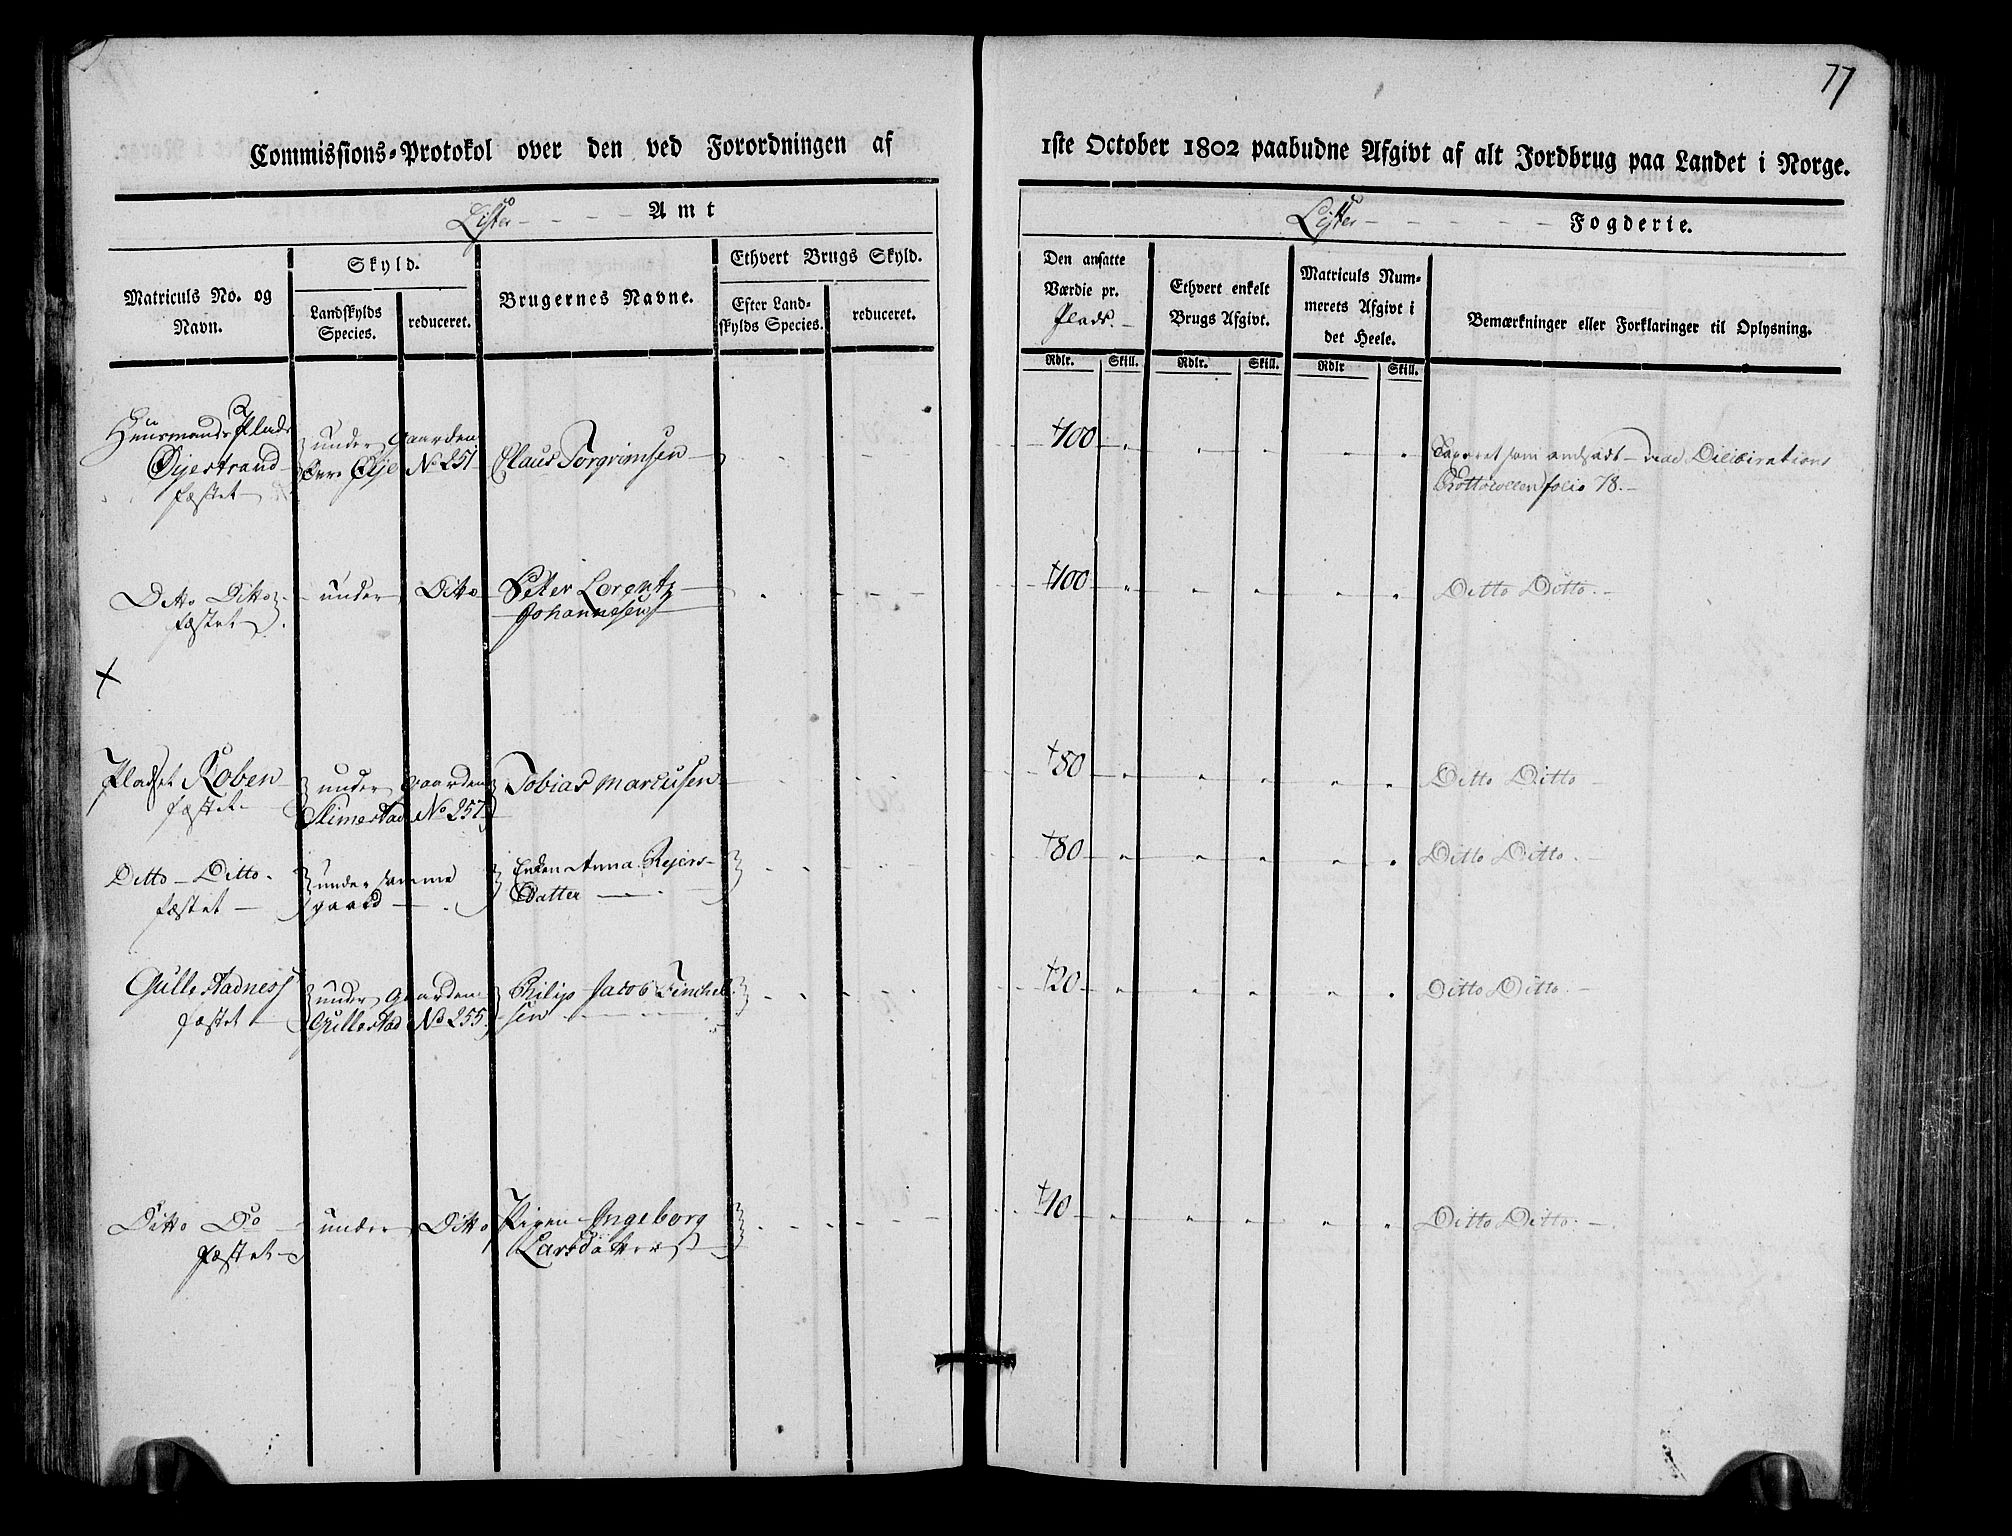 77
Commissions-Protokol over den ved Forordningen af 1ste October 1802 paabudne Afgivt af alt Jordbrug paa Landet i Norge.
Lister Amt
Lister Fogderie.
Matriculs No. og Navn.
Skyld.
Landskylds Species.
reduceret.
Brugernes Navne.
Ethvert Brugs Skyld.
Efter Landskylds Species.
reduceret.
Den ansatte Værdie pr. Plads.
Ethvert enkelt Brugs Afgivt.
Matriculs Nummerets Afgivt i det Heele.
Bemærkninger eller Forklaringer til Oplysning.
Rdlr. Skill. Rdlr. Skill. Rdlr Skill.
Huusmands Plads under Gaarden
Øijestrand Øije No 251 Claus Torgrimsen 100
fæstet
Taxeret som andsadt
Prottocollen folio 78.
Ditto Ditto under Ditto Peter Lorentz 100 Ditto Ditto
fæstet Johannesen
Pladset Roben under Gaarden Tobias Marcusen 80 Ditto Ditto
fæstet Slimestad No 257
Ditto Ditto under samme Enken Anna Rejers- 80 Ditto Ditto
fæstet gaard Datter
Gullestadness under Gaarden Philip Jacob Finckel- 20 Ditto Ditto
fæstet Gullestad No 255 sen
Ditto Do under Ditto Pigen Ingeborg 40 Ditto Ditto
fæstet Larsdatter